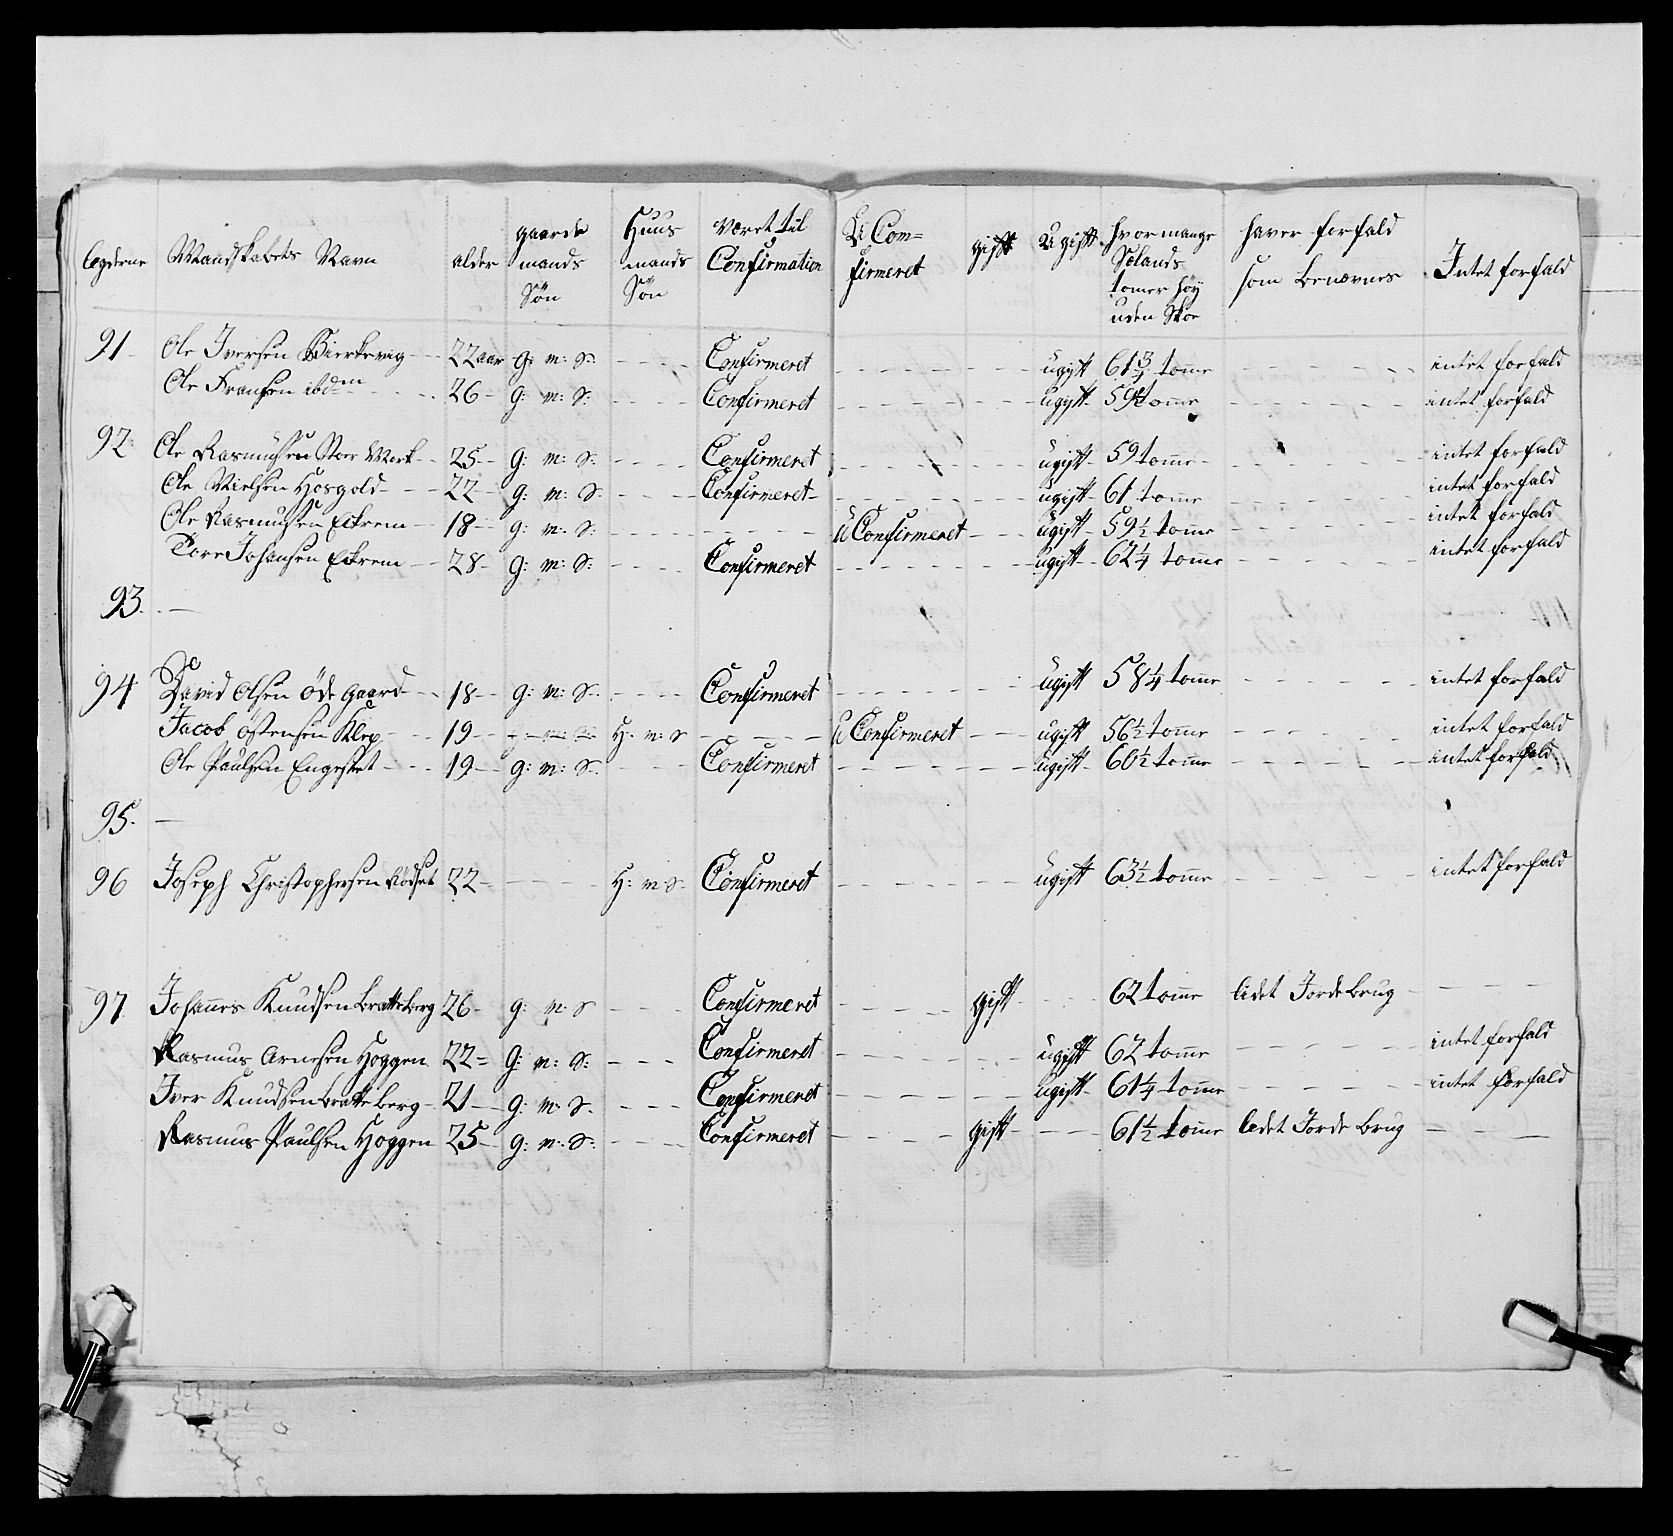 Legderne Mandskabets Navn alder gaarde mands Søn Huus mands Søn Været til Confirmation U Com= firmeret gift Ugift hvor mange Sælands tomer höy uden Skoe haver forfald som benævnes Intet forfald
91 Ole Iversen Bierkevig 22 aar g: m: S: Confirmeret ugift 61 3/4 tomme intet forfald
Ole Fransen ibdm 26 g: m: S: Confirmeret ugift 59 tomme intet forfald
92 Ole Rasmusen Stor Werk 25 g: m: S: Confirmeret ugift 59 tomme intet forfald
Ole Nielsen Hosgold 22 g: m: S: Confirmeret ugift 61 tomme intet forfald
Ole Rasmusen Eckrem 18 g: m: S: U Confirmeret ugift 59 1/2 tomme intet forfald
Tore Johansen Eckrem 28 g: m: S: Confirmeret ugift 62 1/4 tomme intet forfald
93. —
94 David Olsen Öde Gaard 18 g: m: S: Confirmeret ugift 58 1/4 tomme intet forfald
Jacob Östensen Klep 19 H: m: S U Confirmeret ugift 56 1/2 tomme intet forfald
Ole Paulsen Engeset 19 g: m: S: Confirmeret ugift 60 1/2 tomme intet forfald
95. —
96 Joseph Christophersen Rödset 22 H: m: S: Confirmeret ugift 63 1/2 tomme intet forfald
97 Johannes Knudsen Bratteberg 26 g: m: S Confirmeret gift 62 tomme lidet Jordebrug
Rasmus Arnesen Hoggen 22 g: m: S: Confirmeret ugift 62 tomme intet forfald
Iver Knudsen Bratteberg 21 g: m: S. Confirmeret ugift 61 1/4 tomme intet forfald
Rasmus Paulsen Hoggen 25 g: m: S: Confirmeret gift 61 1/2 tomme lidet Jordebrug